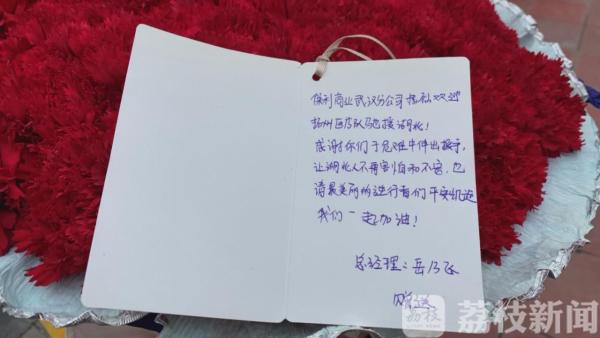 保利商业武汉分公司 欢迎
扬州医疗队驰援湖北！
感谢你们于危难中伸出援手，
让湖北人不再害怕和不安，也
请最美丽的逆行者们平安凯旋
我们一起加油！
总经理：岳
赠送
荔枝
荔枝新闻